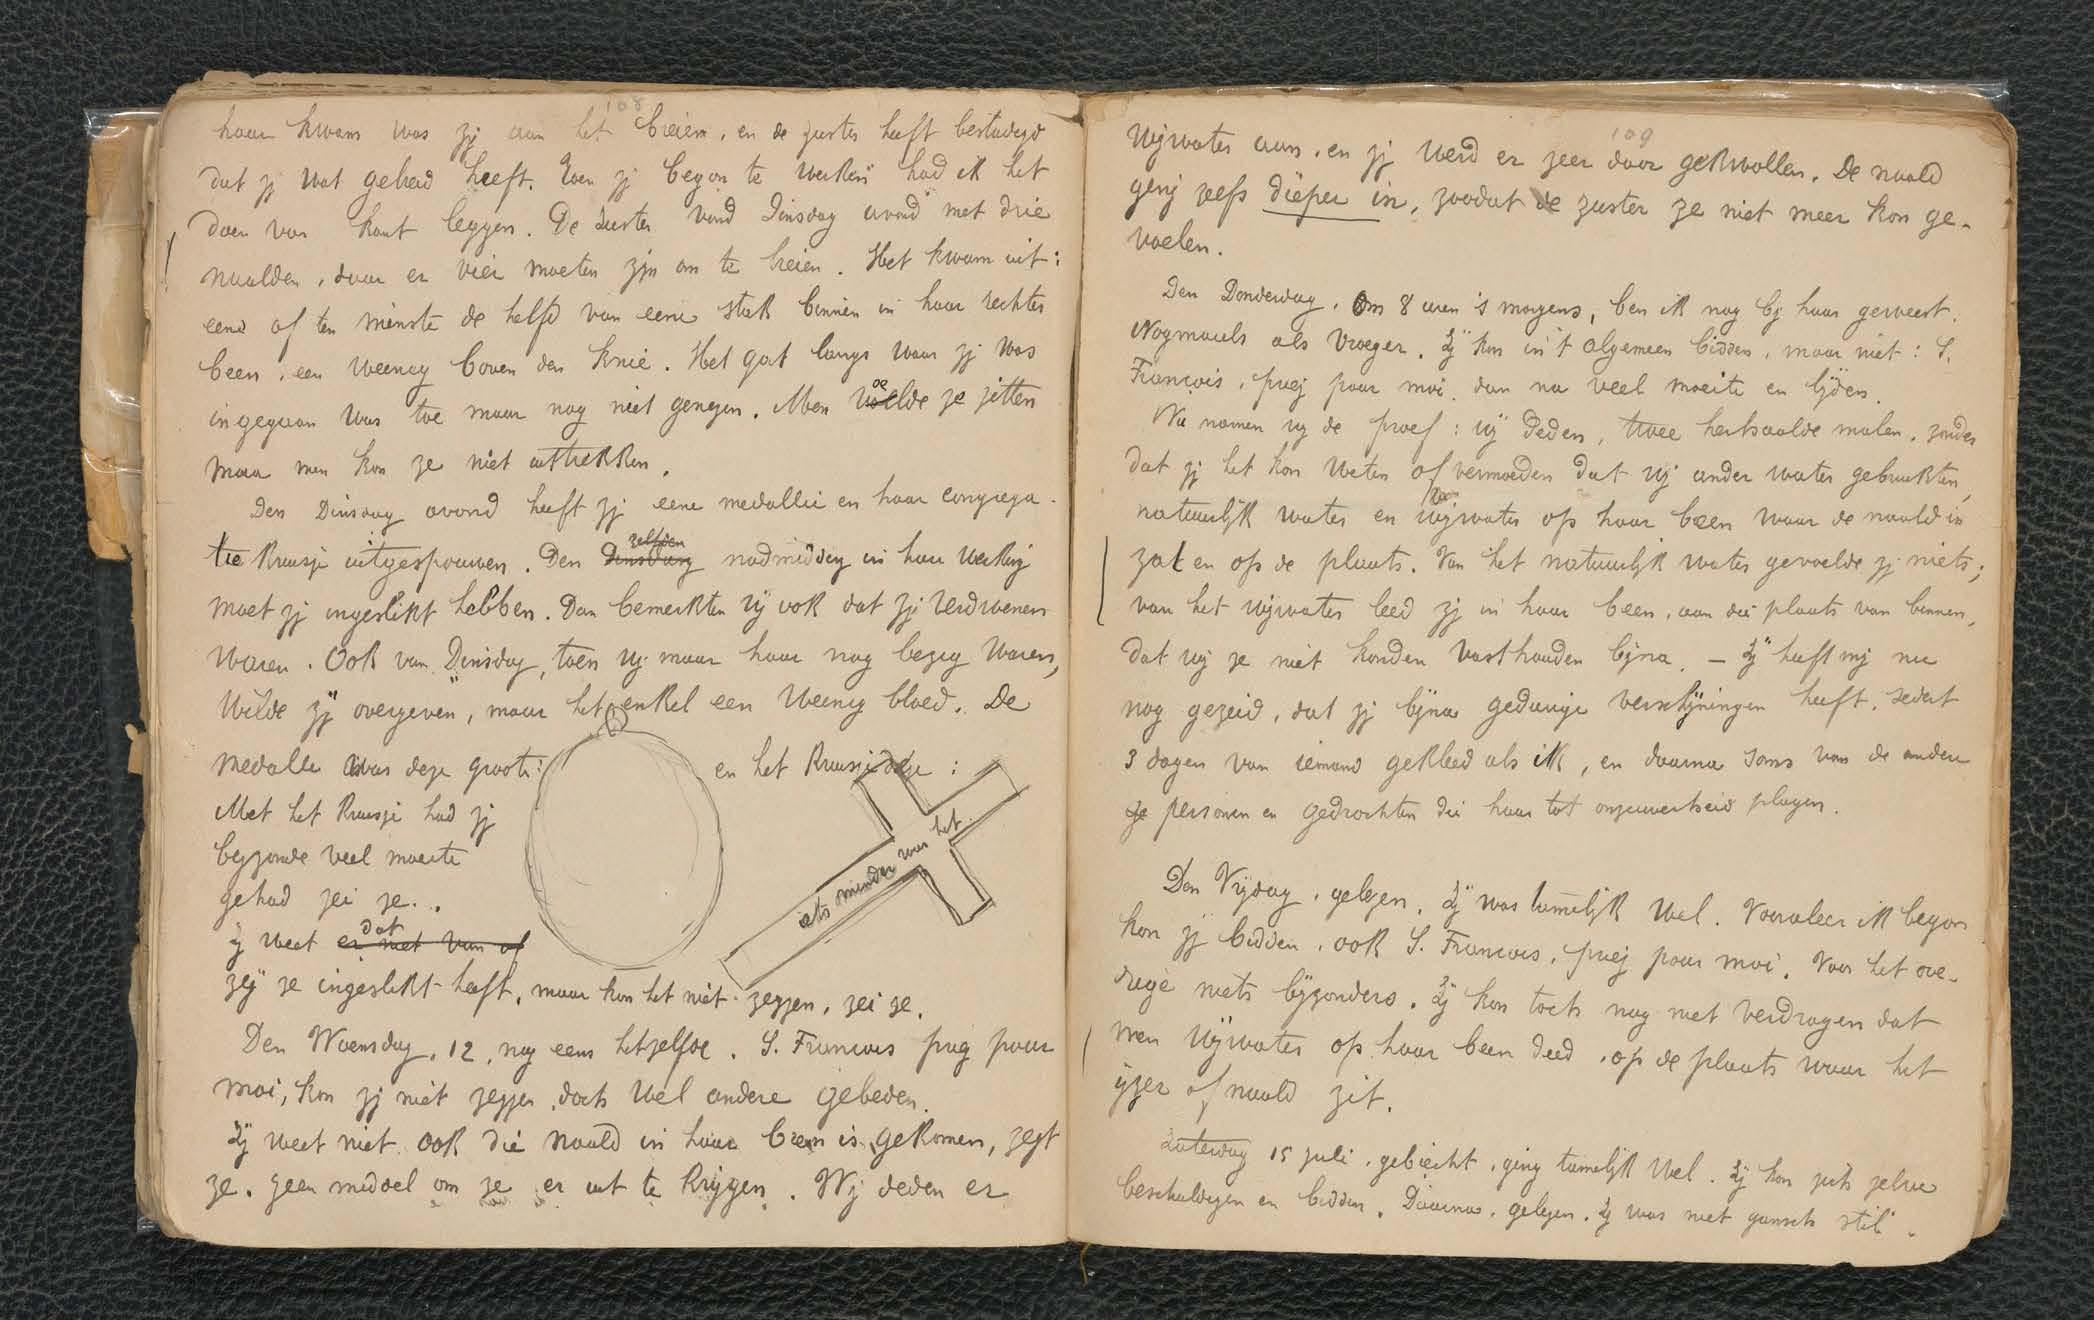 108
haar kwam was zij aan het breien, en de zuster heeft bestadigd
dat zij wat gebreid heeft. Toen zij begon te werken had ik het
doen van kant leggen. De zuster vond Dinsdag avond met drie
naalden, daar er vier moeten zijn om te breien. Het kwam uit:
eene of ten minste de helft van eene stak binnen in haar rechter
been, een weenig boven den knie. Het gat langs waar zij was
ingegaan was toe maar nog niet genezen. Men voelde ze zitten
maar men kon ze niet uittrekken.
Den Dinsdag avond heeft zij eene medallie en haar congrega-
tie kruisje uitgespouwen. Den zelfden nadmiddag in haar werking
moet zij ingeslikt hebben. Dan bemerkten wij ook dat zij verdwenen
waren. Ook van Dinsdag, toen wij maar haar nog bezig waren,
wilde zij overgeven, maar het enkel een weenig bloed. De
medalle was deze groote:
en het kruisje deze:
Met het kruisje had zij
byzonde veel moeite
gehad zei ze.
iets minder was het
zij weet er niet van of dat
zij ze ingeslikt heeft, maar kon het niet zeggen, zei ze.
Den Woensdag, 12, nog eens hetzelfde. S. François priez pour
moi, kon zij niet zeggen, doch wel andere gebeden.
Zij weet niet ook die naald in haar been is gekomen, zegt
ze. Geen middel om ze er uit te krijgen. Wij deden er
109
Wijwater aan, en zij werd er zeer door gekwollen. De naald
ging zelfs dieper in, zoodat de zuster ze niet meer kon ge-
voelen.
Den Donderdag, om 8 uren 's morgens, ben ik nog bij haar geweest.
Nogmaals als vroeger. Zij kon in't algemeen bidden, maar niet: S.
François, priez pour moi, dan na veel moeite en lijden.
Nu namen wij de proef: wij deden, twee herhaalde malen, zonder
dat zij het kon weten of vermoeden dat wij ander water gebruikten,
natuurlijk water en wijwater op haar been waar de naald in
zat en op de plaats. Van het natuurlijk water gevoelde zij niets;
van het wijwater leed zij in haar been, aan die plaats van binnen,
dat wij ze niet konden vasthouden bijna. — Zij heeft mij nu
nog gezeid, dat zij bijna gedurige verschijningen heeft, sedert
3 dagen van iemand gekleed als ik, en daarna soms van de andere
ge personen en gedrochten die haar tot onzuiverheid plagen.
Den Vrijdag, gelezen. Zij was tamelijk wel. Vooraleer ik begon
kon zij bidden, ook S. François, priez pour moi. Voor het ove-
rige niets bijzonders. Zij kon toch nog niet verdragen dat
men wijwater op haar been deed, op de plaats waar het
ijzer of naald zit.
Zaterdag 15 juli, gebiecht, ging tamelijk wel. Zij kon zich zelve
beschuldigen en bidden. Daarna, gelezen. Zij was niet gansch stil.